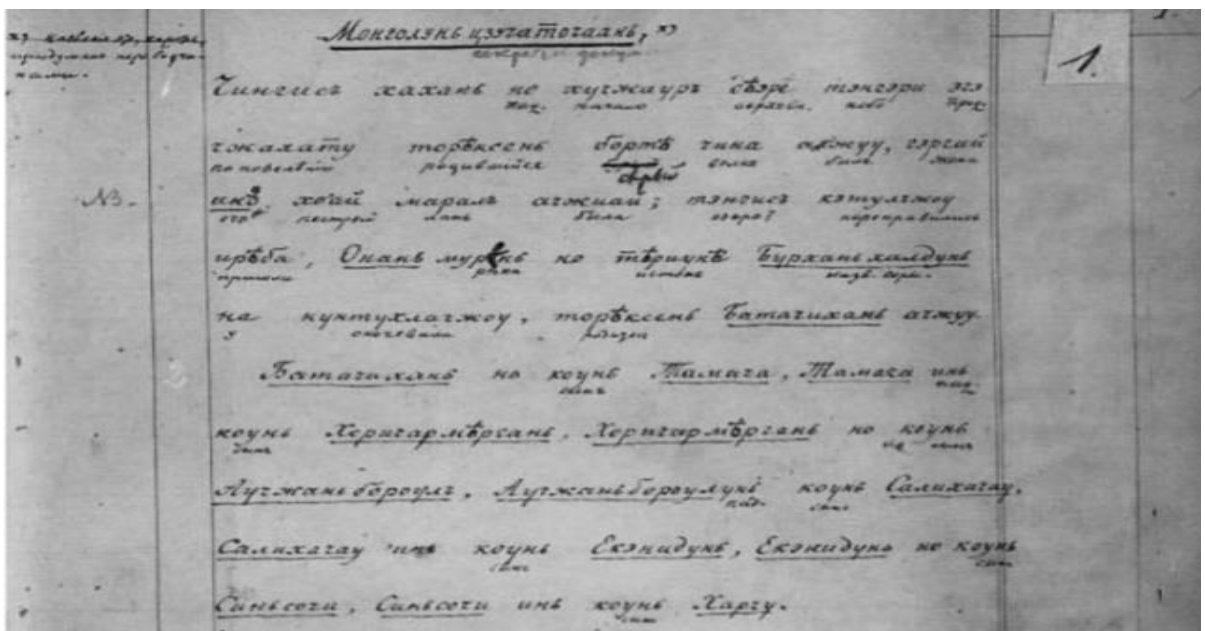 Монголэнь цзэчаточаань, х)
х)
1.
Чингисъ хаханъ но хучжауръ дѣэрѐ тэнгэри эгэ
пад. начало небо прил.
чжаяату торѣксенъ бортѣ чина ажуу, гэргай
по повелѣнію родившійся волкъ былъ жена
сѣрый
NB.
инэ хоай маралъ ачжиай; тэнгисъ кэтулчжоу
его пестрый лань была озеро? переправились
ирѣба, Ононь мурѣнь но тѣриунѣ Бурхань халдунь
пришли рѣки истокъ назв. горы.
на нунтухлачжоу, торѣксенъ Батачихань ачжуу
у кочевали родился
Батачихань но коунь Тамача, Тамача инь
сынъ пад.
коунь Хоричармѣргань, Хоричармѣргань но коунь
сынъ сынъ
Аучжаньбороулъ, Аучжаньбороулунь коунь Салихачау,
пад. сынъ
Салихачау инь коунь Екэнидунь, Екэнидунь но коунь
сынъ сынъ
Синьсочи, Синьсочи инь коунь Харчу.
сынъ